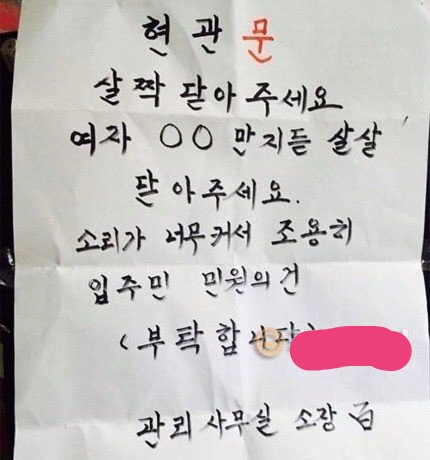 현관문
살짝 닫아 주세요
여자 ○○ 만지듯 살살
닫아주세요.
소리가 너무커서 조용히
입주민 민원의건
(부탁합니다)
관리사무실 소장 白